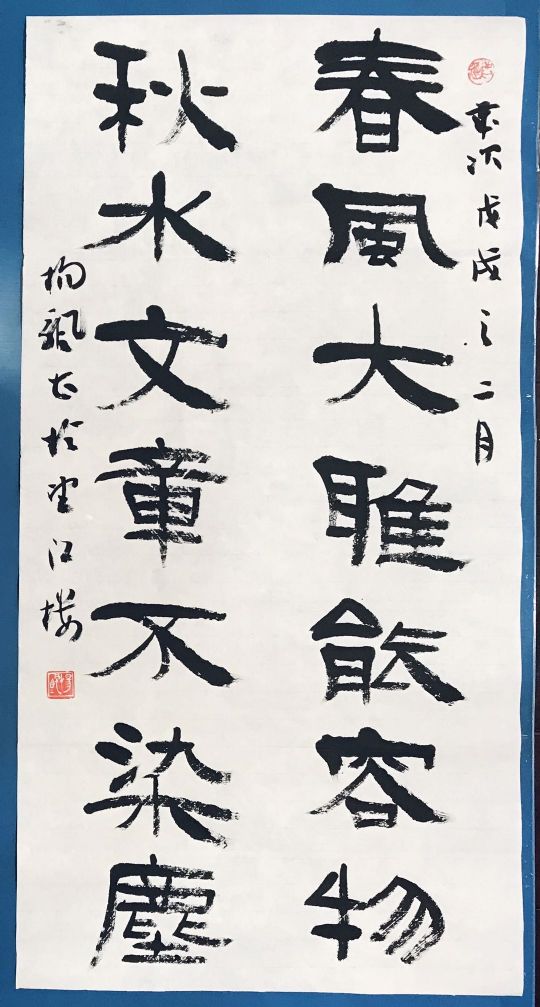 歲次戊戌之二月
春風大雅能容物
秋水文章不染塵
書於望江樓